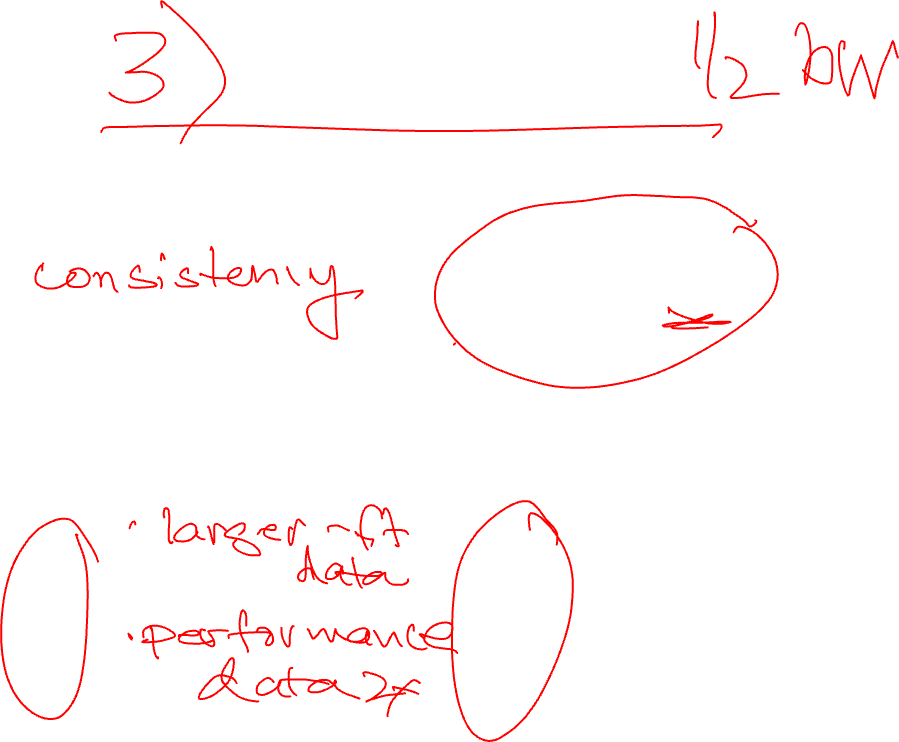 3) 1/2 bw
consistency
· larger -ft
data
· performance
data 2x